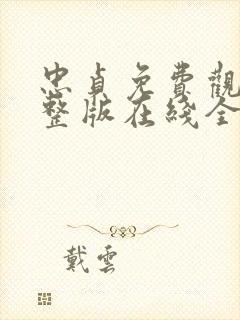 忠貞免費觀
整版在綫全
戴雲